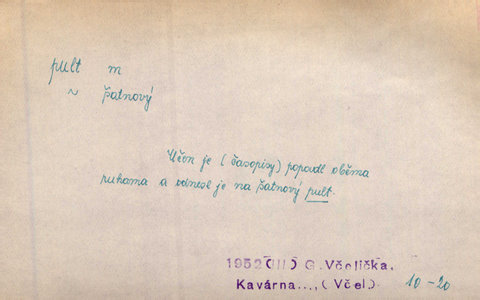 pult m
~ šatnový
Učen je (časopisy) popadl oběma
rukama a odnesl je na šatnový pult.
1952 G. Včelička,
Kavárna..., (Včel)
10-20